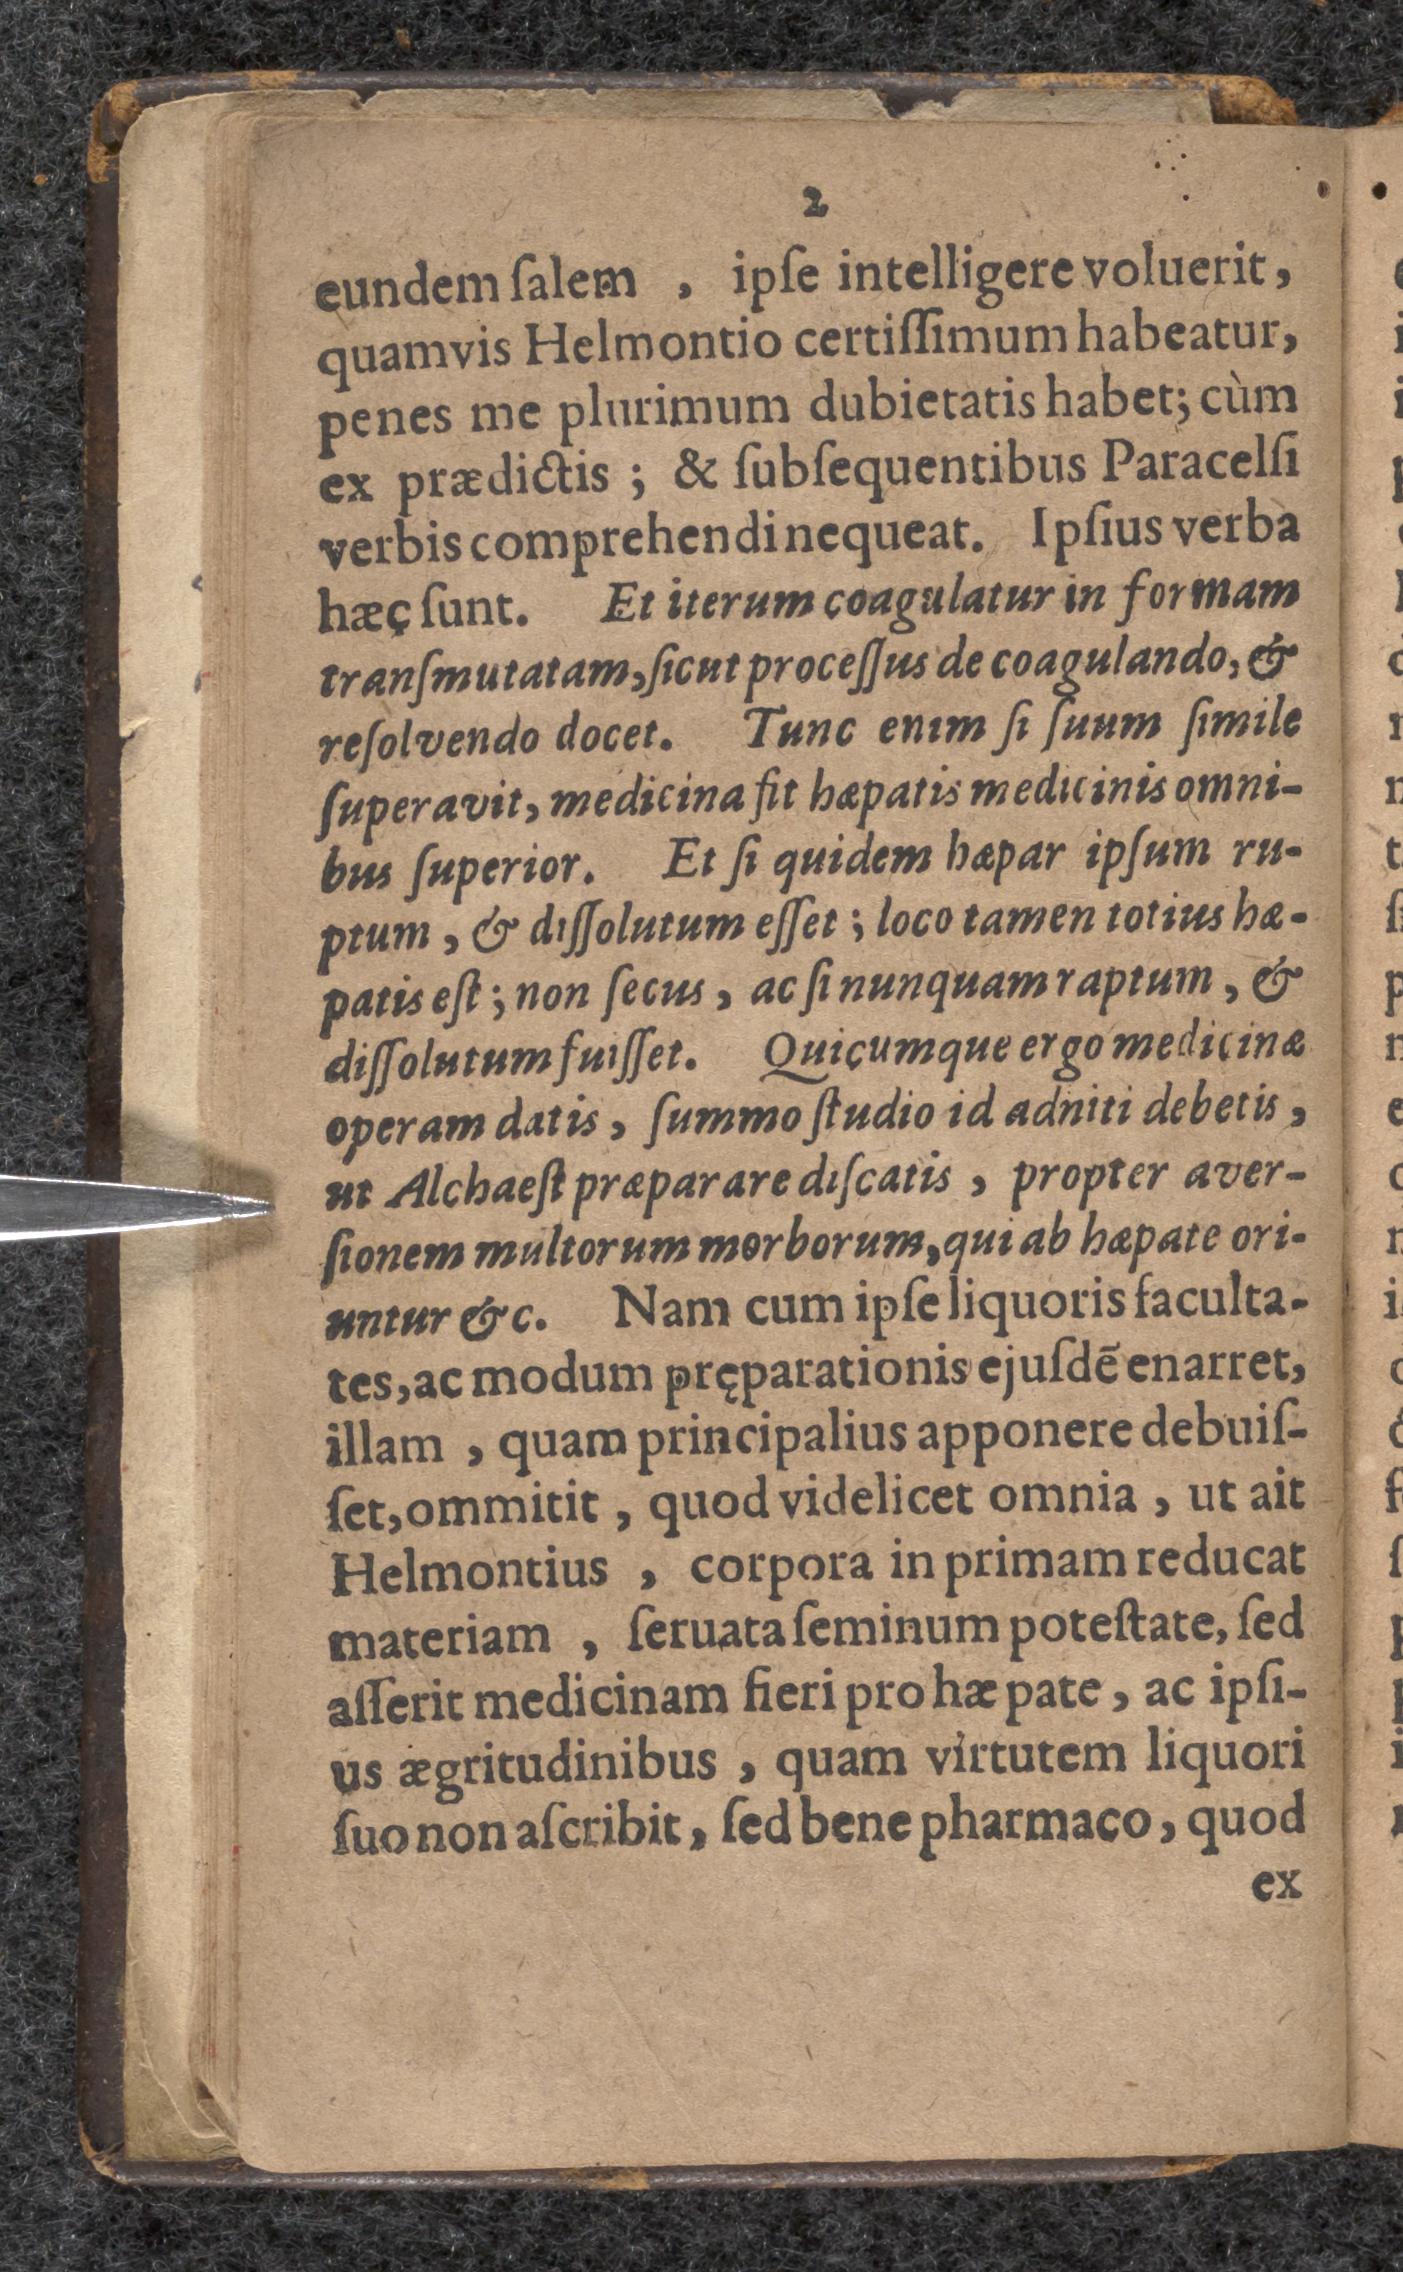 2
eundem ſalem , ipſe intelligere voluerit,
quamvis Helmontio certiſſimum habeatur,
penes me plurimum dubietatis habet; cùm
ex prædictis ; & ſubſequentibus Paracelſi
verbis comprehendi nequeat. Ipſius verba
hæç ſunt. Et iterum coagulatur in formam
tranſmutatam, ſicut proceſſus de coagulando, &
reſolvendo docet. Tunc enim ſi ſuum ſimile
ſuperavit, medicina fit hæpatis medicinis omni-
bus ſuperior. Et ſi quidem hæpar ipſum ru-
ptum , & diſſolutum eſſet ; loco tamen totius hæ-
patis eſt ; non ſecus , ac ſi nunquam raptum , &
diſſolutum fuiſſet. Quiçumque ergo medicinæ
operam datis , ſummo ſtudio id adniti debetis ,
ut Alchaeſt præparare diſcatis , propter aver-
ſionem multorum morborum, qui ab hæpate ori-
untur &c. Nam cum ipſe liquoris faculta-
tes, ac modum pręparationis ejuſdē enarret,
illam , quam principalius apponere debuiſ-
ſet, ommitit , quod videlicet omnia , ut ait
Helmontius , corpora in primam reducat
materiam , ſeruata ſeminum poteſtate, ſed
aſſerit medicinam fieri pro hæpate , ac ipſi-
us ægritudinibus , quam virtutem liquori
ſuo non aſcribit , ſed bene pharmaco , quod
ex